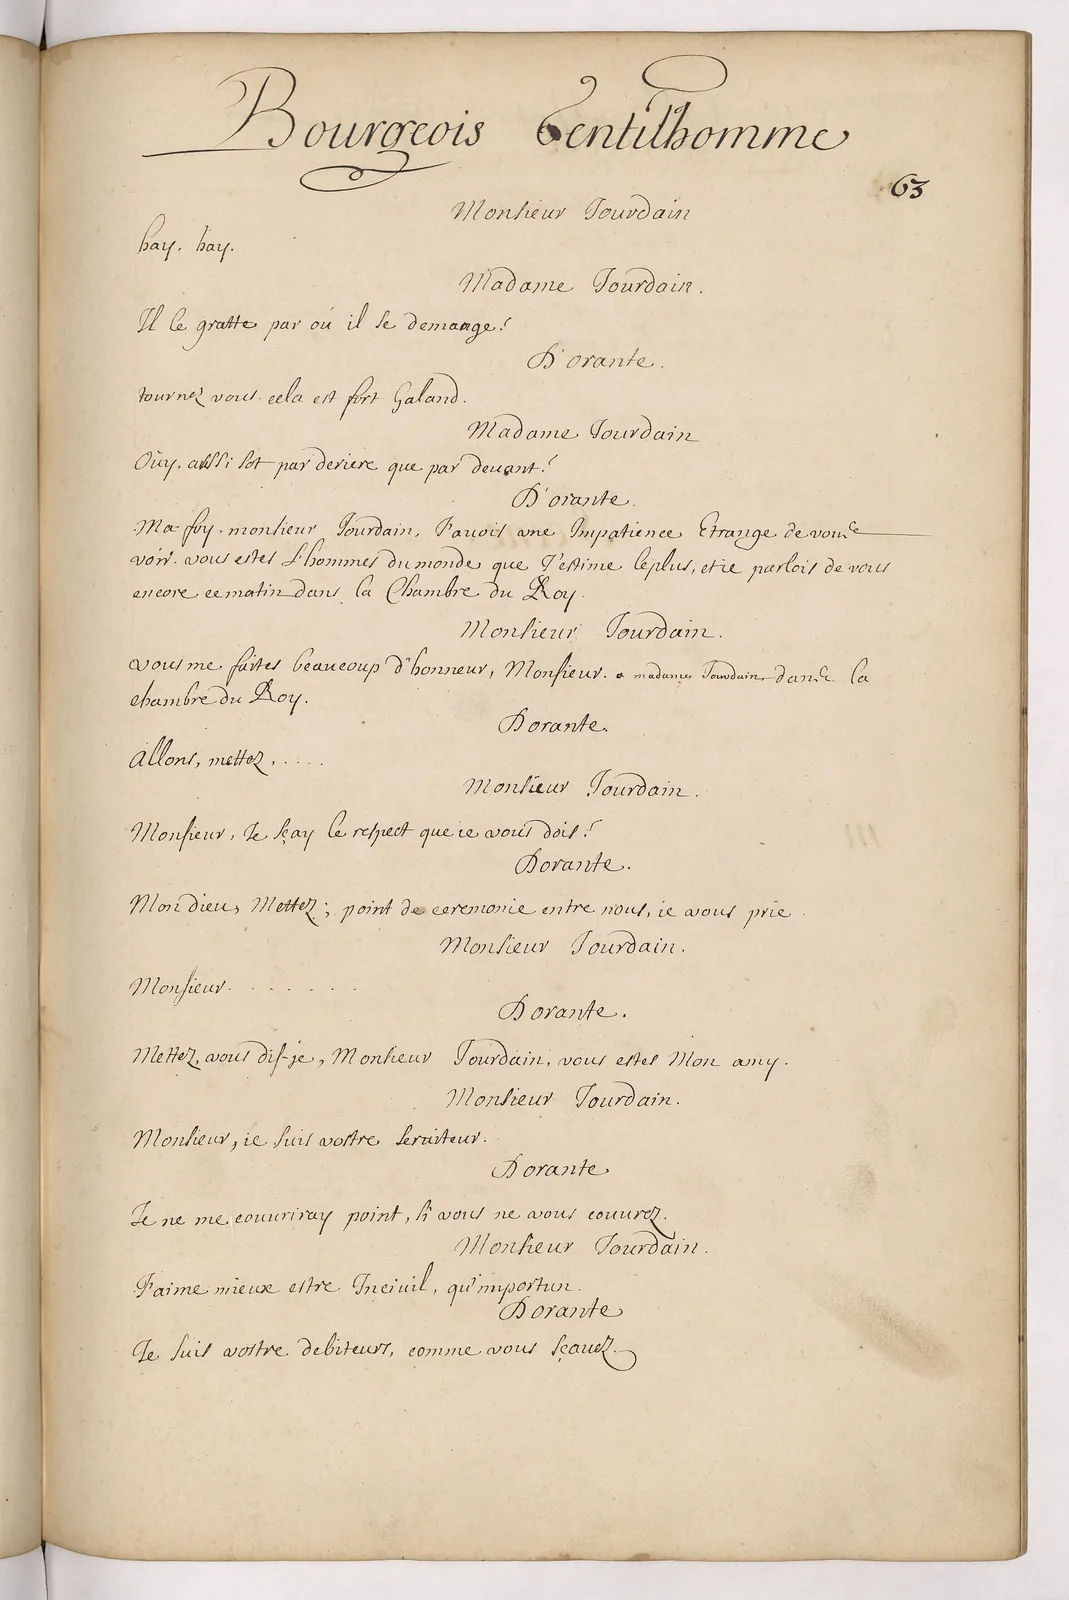 Bourgeois Gentilhomme
63
Monsieur Jourdain
hay, hay.
Madame Jourdain.
Il le gratte par ou il se demange!
D'orante.
tournez vous cela est fort Galand.
Madame Jourdain
Oüy, aussi sot par deriere que par deuant!
D'orante.
Ma foy, monsieur Jourdain, J'auois une Impatience Etrange de vous
voir. vous estes L'hommes du monde que J'estime le plus, et ie parlois de vous
encore ce matin dans la Chambre du Roy.
Monsieur Jourdain.
vous me faites beaucoup d'honneur, Monsieur. a madame Jourdain, dans la
chambre du Roy.
Dorante.
Allons, mettez, ....
Monsieur Jourdain.
Monsieur, Je sçay le respect que ie vous dois!
Dorante.
Mon dieu, Mettez; point de ceremonie entre nous, ie vous prie.
Monsieur Jourdain.
Monsieur. . . . . . .
Dorante.
Mettez, vous dis-je, Monsieur Jourdain, vous estes Mon amy.
Monsieur Jourdain.
Monsieur, ie suis vostre seruiteur.
Dorante
Je ne me couuriray point, si vous ne vous couurez.
Monsieur Jourdain.
J'aime mieux estre Inciuil, qu'importun.
Dorante
Je suis vostre debiteurs, comme vous sçauez.